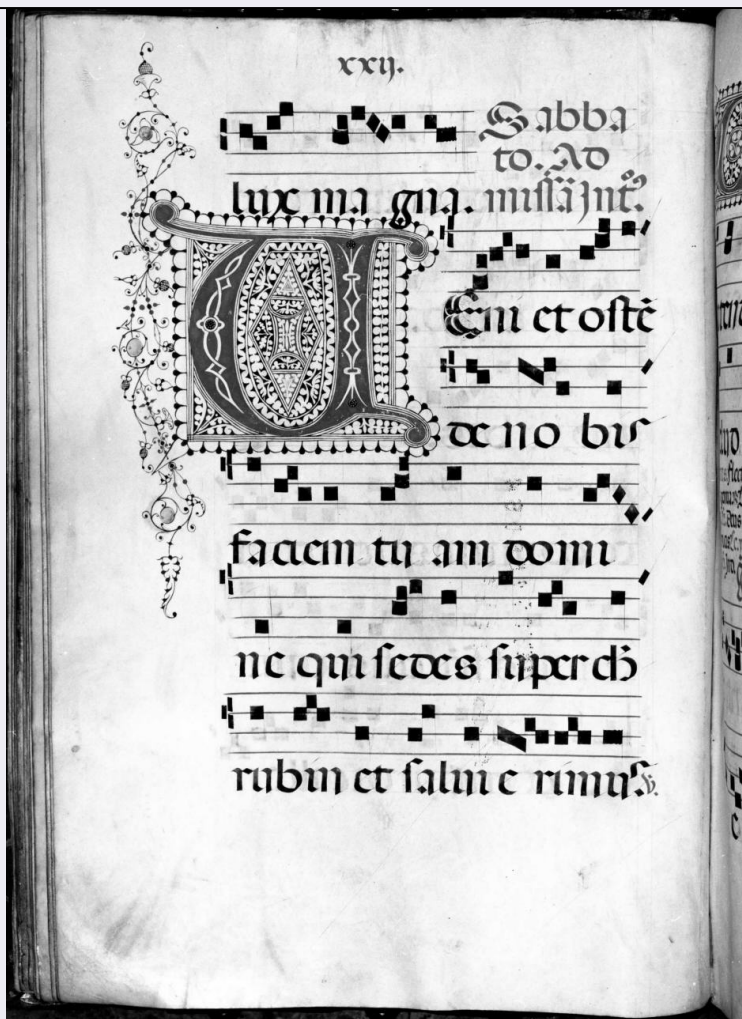 xxij.
Sabba
to. Ad
lux ma gna. missā Int̊.
VEni et ostē
de no bis
faciem tu am domi
ne qui sedes super che
rubin et salui e rimus. ℣.